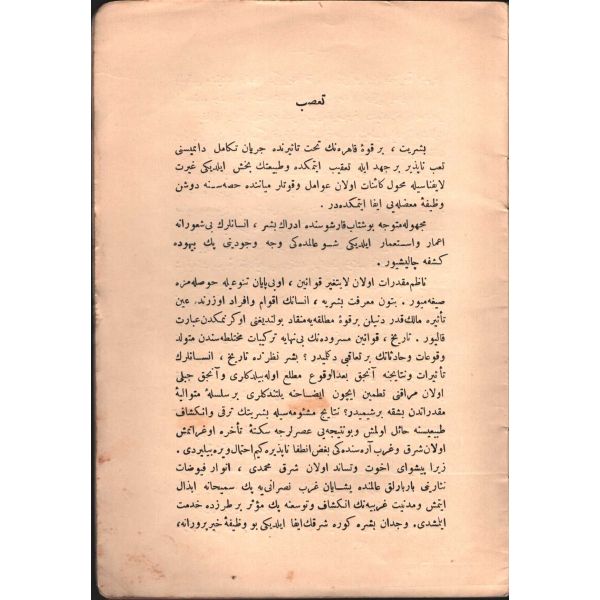 تعصب
بشریت ، بر قوۀ قاهره‌نك تحت تاثیرنده جریان تكامل دائمیسنی
تعب ناپذیر بر جهد ایله تعقیب ایتمكده وطبیعتك بخش ایلدیكی غیرت
لایفناسیله محول كائنات اولان عوامل وقوتلر میاننده حصه‌سنه دوشن
وظیفۀ معضله‌یی ایفا ایتمكده‌در .
مجهوله متوجه بوشتاب قارشوسنده ادراك بشر ، انسانلرك بی‌شعورانه
اعمار واستعمار ایلدیكی شو عالمده‌كی وجه وجودینی پك بیهوده
كشفه چالیشیور .
ناظم مقدرات اولان لایتغیر قوانین ، اوبی‌پایان تنوعیله حوصله‌مزه
صیغه‌میور . بتون معرفت بشریه ، انسانك اقوام وافراد اوزرنده عین
تأثیره مالك قدر دنیلن بر قوۀ مطلقه‌یه منقاد بولندیغنی اوكرنمكدن عبارت
قالیور . تاریخ ، قوانین مسروده‌نك بی‌نهایه تركیبات مختلطه‌سندن متولد
وقوعات وحادثاتك بر تعاقبی دكلمیدر ؟ بشر نظرنده تاریخ ، انسانلرك
تأثیرات ونتایجنه آنجق بعدالوقوع مطلع اوله‌بیلدكلری وآنجق جبلی
اولان مراقنی تطمین ایچون ایضاحنه یلتندكلری بر سلسلۀ متوالیۀ
مقدراتدن بشقه بر شیمیدر؟ نتایج مشئومه‌سیله بشریتك ترقی وانكشاف
طبیعیسنه حائل اولمش وبونتیجه‌یی عصرلرجه سكتۀ تأخره اوغراتمش
اولان شرق وغرب آره‌سنده‌كی بغض انطفا ناپذیره كیم احتمال ویره‌بیلیردی .
زیرا پیشوای اخوت وتساند اولان شرق محمدی ، انوار فیوضات
نثارینی باربارلق عالمنده یشایان غرب نصرانی‌یه پك سمیحانه ابذال
ایتمش ومدنیت غربیه‌نك انكشاف وتوسعنه پك مؤثر بر طرزده خدمت
ایتمشدی . وجدان بشره كوره شرقك ایفا ایلدیكی بو وظیفۀ خیرپرورانه،